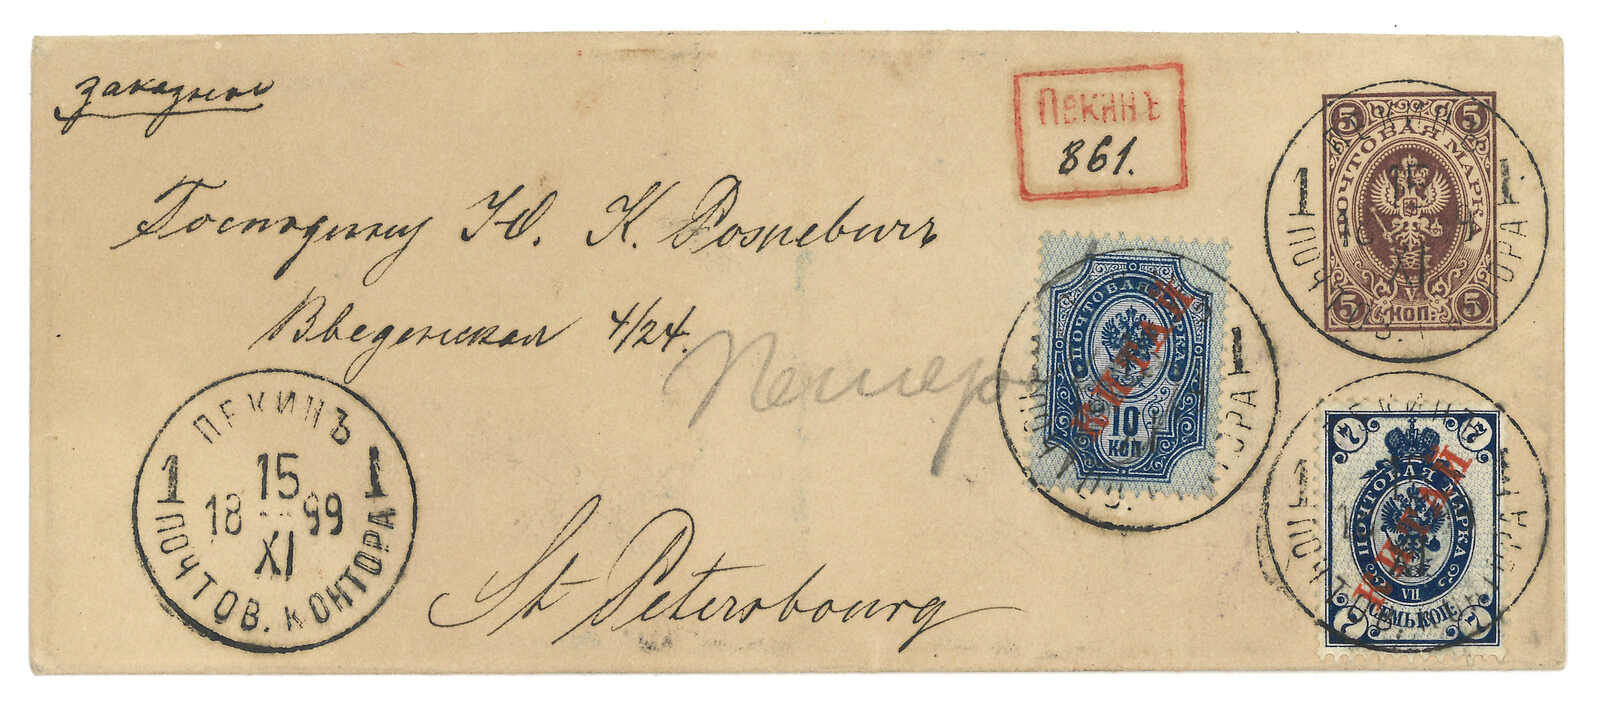 заказное
Пекинъ
861.
5 5
ПОЧТОВАЯ МАРКА
V
5 КОП. 5
Господину Ю. К. Рожевичъ
Введенская 4/24.
St Petersbourg
ПОЧТОВАЯ МАРКА
КИТАЙ
10
КОП.
7 7
ПОЧТОВАЯ МАРКА
КИТАЙ
VII
7 СЕМЬ КОП. 7
ПЕКИНЪ
1 15 1
18 99
XI
ПОЧТОВ. КОНТОРА